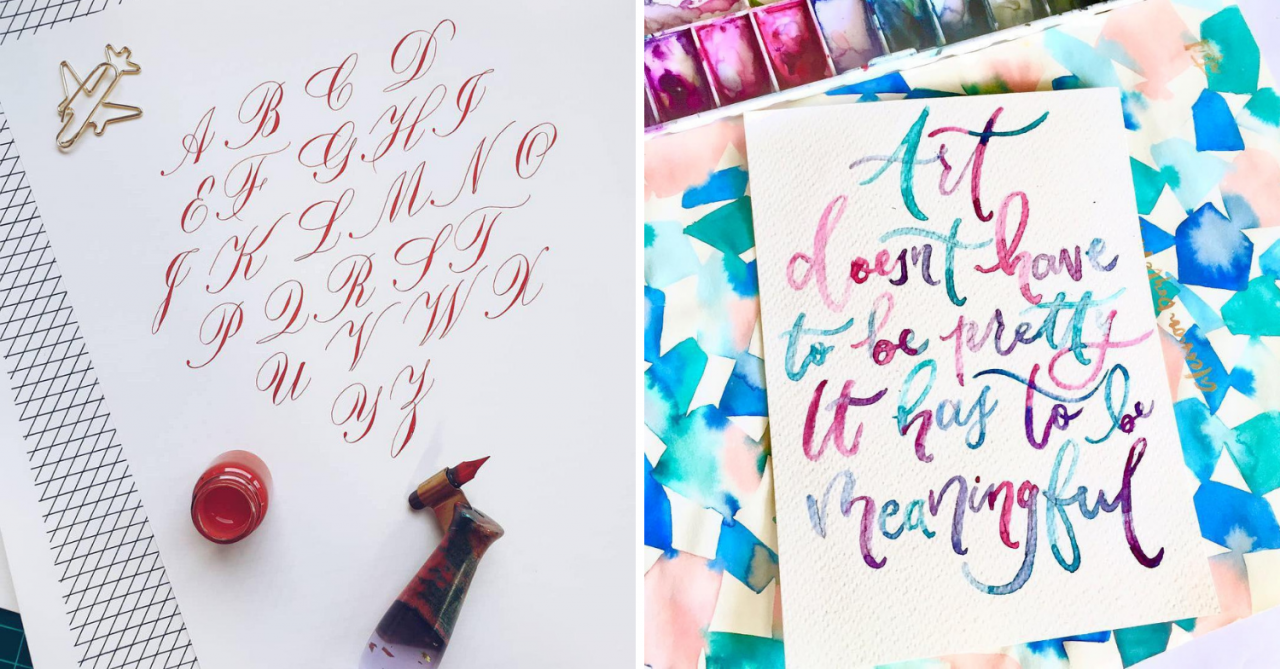 A B C D
E F G H I
J K L M N O
P Q R S T
U V W X
Y Z
Art
doesnt have
to be pretty
It has to be
meaningful